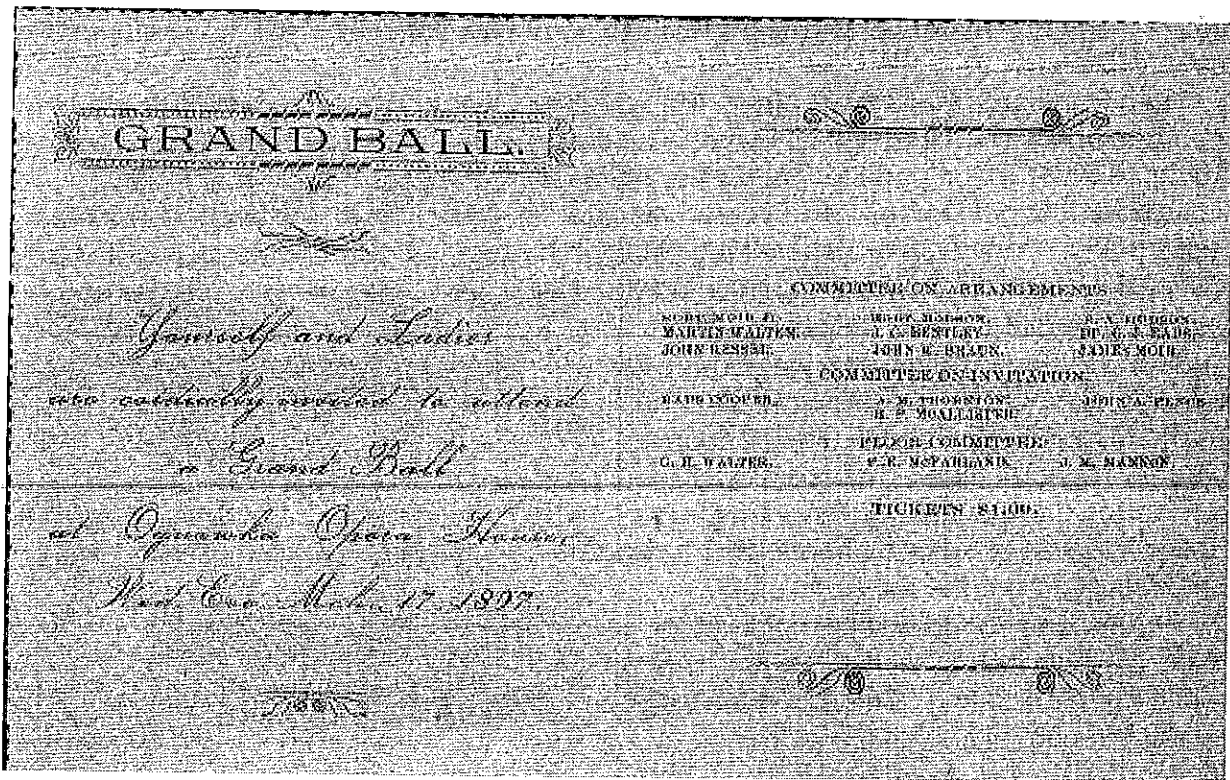 GRAND BALL.
Yourself and Ladies
are cordially invited to attend
a Grand Ball
at Oquawka Opera House,
Wed. Eve. Mch. 17, 1897.
COMMITTEE ON ARRANGEMENTS
ROBT. MOIR, Jr.
MARTIN WALTER. J. C. BENTLEY.
JOHN KESSEL. JOHN R. BRAUN. JAMES MOIR.
COMMITTEE ON INVITATION.
HARRY COOPER. J. M. THORNTON.
H. F. McALLISTER.
FLOOR COMMITTEE:
G. H. WALTER. McFARLAND. J. M. MANNON.
TICKETS $1.00.